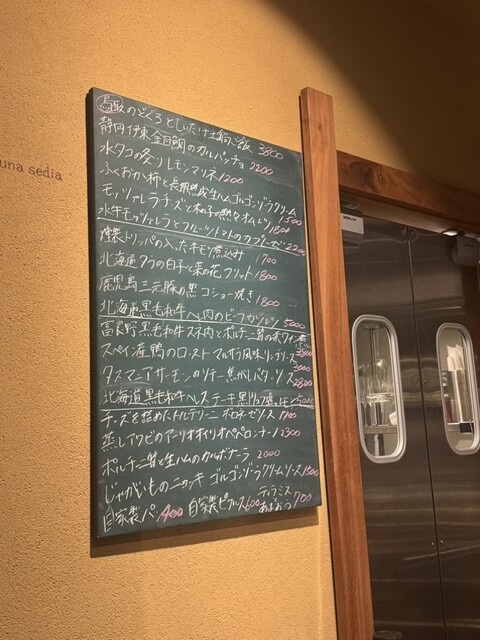 una sedia
鳥取のどぐろとしいたけ土鍋ご飯 3800
静岡伊東金目鯛のカルパッチョ 2200
水タコの炙りレモンマリネ 1200
ふくおか柿と長期熟成生ハムゴルゴンゾーラクリーム 1500
モッツァレラチーズと木の子の熱々オムレツ 1800
水牛モッツァレラとフルーツトマトのカプレーゼ 2200
燻製トリッパの入った牛モツ煮込み 1700
北海道タラの白子と菜の花フリット 1800
鹿児島三元豚の黒コショー焼き 1800
北海道黒毛和牛ヘレ肉のビーフカツレツ 5000
富良野黒毛和牛スネ肉とポルチーニ茸の赤ワイン煮
スペイン産鴨のロースト マルサラ風味 ソース 3800
タスマニアサーモンのソテー 焦がしバターソース 2800
北海道黒毛和牛ヘレステーキ 黒 レモン 5000
チーズを詰めたトルテリーニ ボロネーゼソース 1700
蒸しアワビのアーリオオイリオペペロンチーノ 2300
ポルチーニ茸と生ハムのカルボナーラ 2000
じゃがいものニョッキ ゴルゴンゾーラクリームソース 1500
自家製パン 400 自家製ピクルス 600 ティラミス あまおう 700